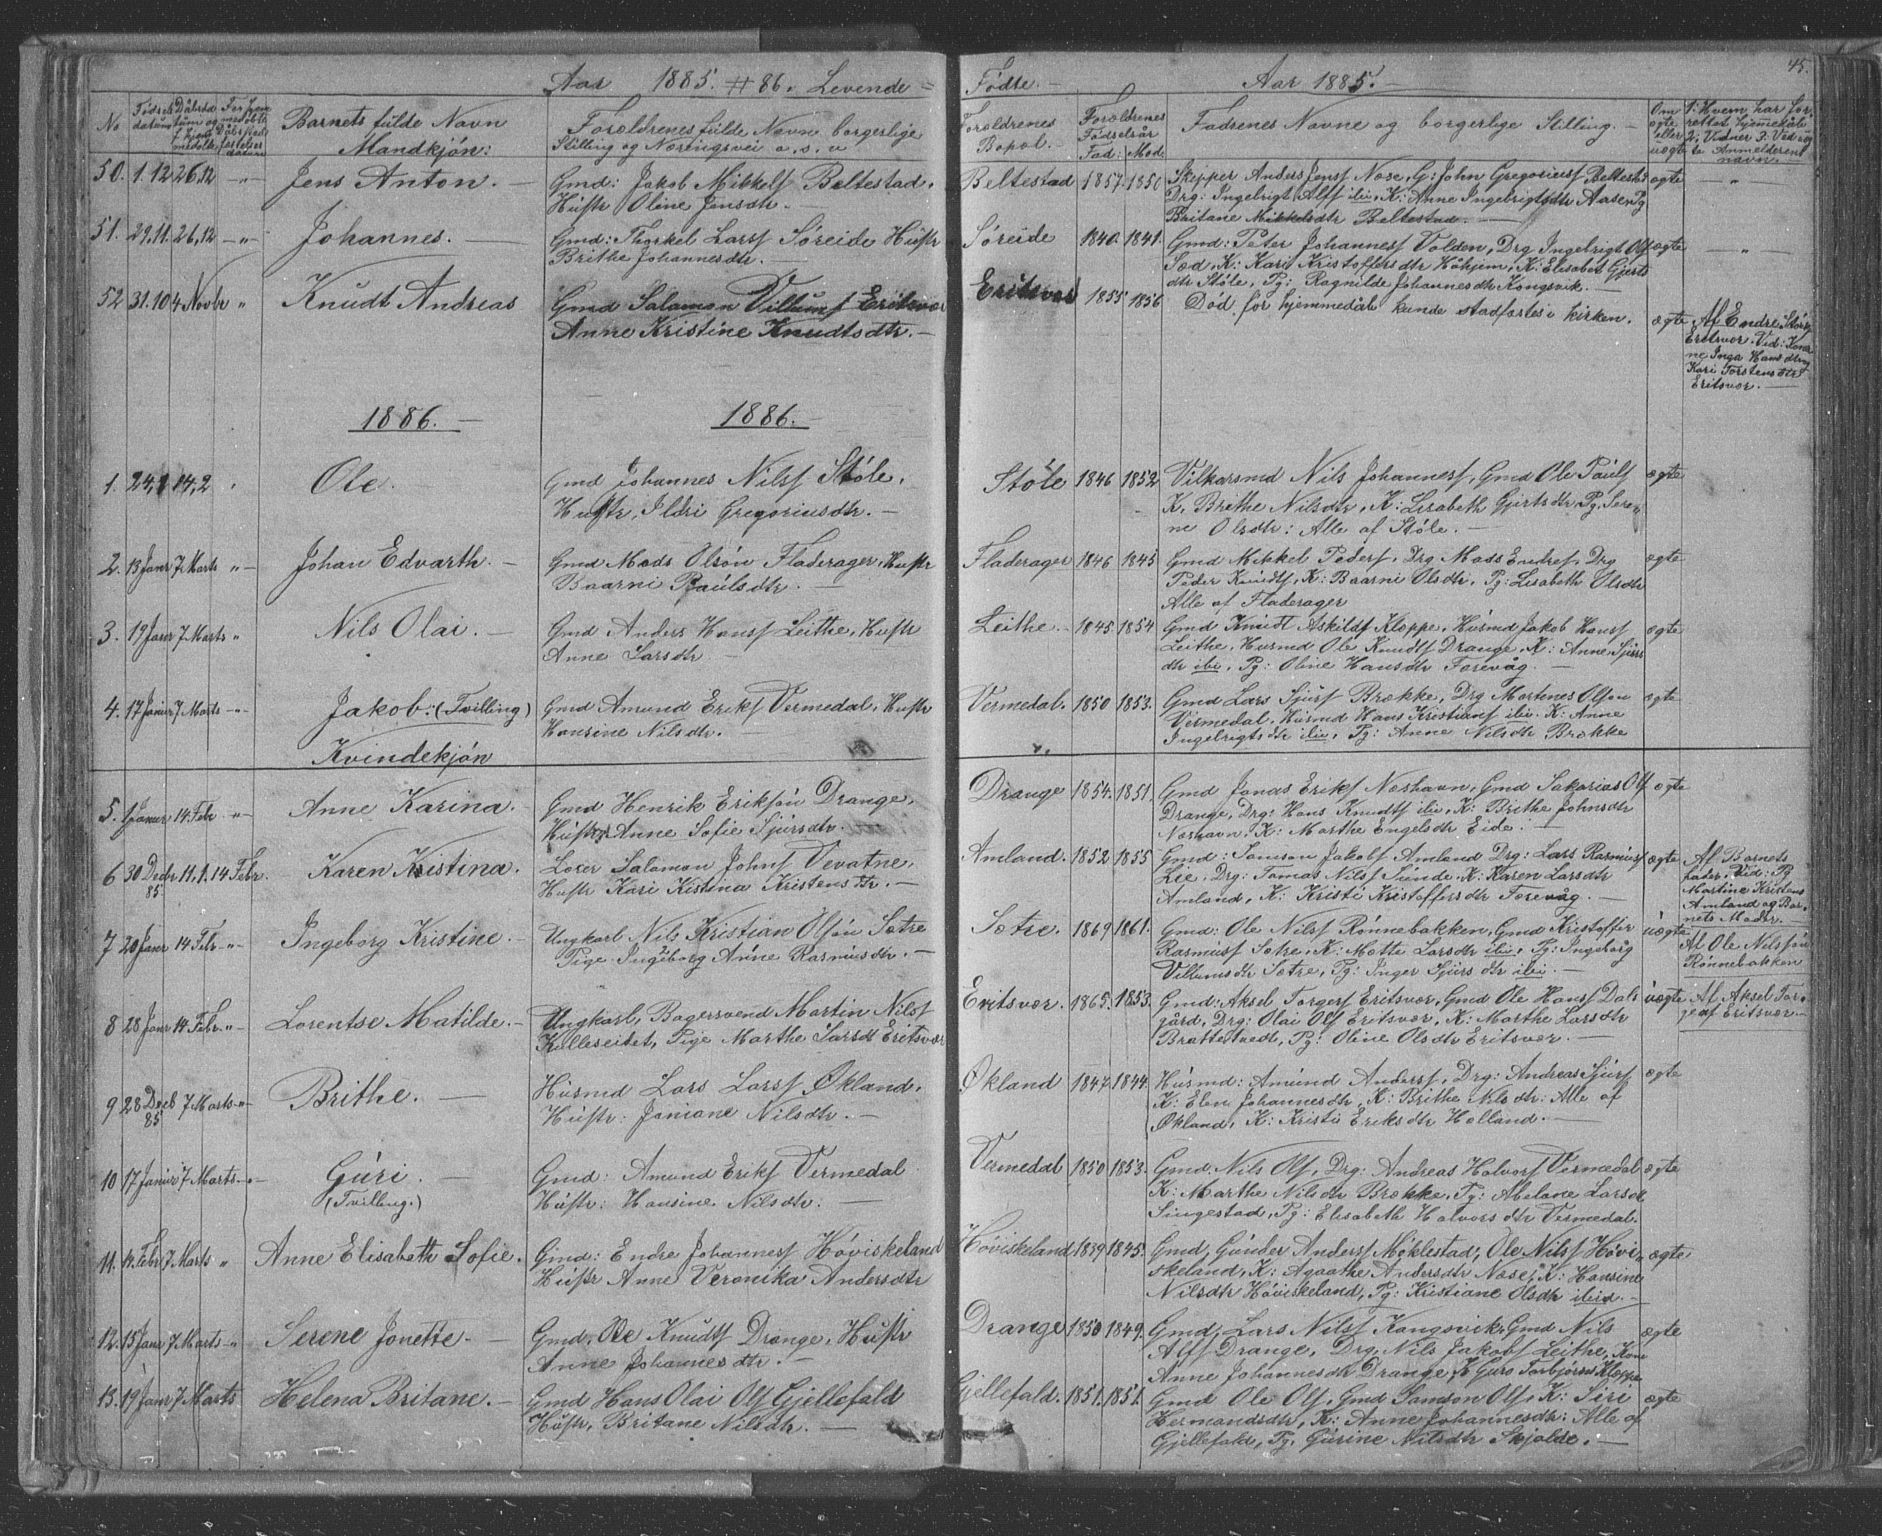 Aar 1885. # 86. Levende =
Födte. — Aar 1885. — 45.
No
Barnets fulde Navn
Mandkjön:
Forældrenes fulde Navn borgerlige
Stilling og Næringsvei o. s. v.
Forældrenes
Bopæl.
Forældrenes
Födselsår
Fad: Mod.
Fadrenes Navne og borgerlige Stilling. —
Om
ægte
eller
uægte
50. 1.12 26,12 —"— Jens Anton. — Gmd: Jakob Mikkels Beltestad,
Hustr Oline Jensdtr. —
Beltestad 1857. 1850 Skipper Anders Jensf Nose, G: John Gregoriusf Beltestad ægte —"—
Drg: Ingebrigt Alff ibi, K: Anne Ingebrigtsdtr Aasen, Pg
Britane Mikkelsdtr Beltestad. —
51. 29.11. 26,12 —"— Johannes. — Gmd: Thorkel Larsf Söreide Hustr
Brithe Johannesdtr. —
Söreide 1840. 1841. Gmd: Peter Johannesf Volden, Drg Ingebrigt Olf ægte —"—
Sæd, K: Kari Kristoffersdtr Håhjem, K: Elisabet Gjerts
dtr Stöle, Pg: Ragnilde Johannesdtr Kongsvik. —
52 31.10 4 Novbr " Knudt Andreas Gmd Salamon Villumf Eritsvær
Anne Kristine Knudtsdtr. —
Eritsvær 1855 1856 Död, för hjemmedåb kunde stadfæstes i kirken. ægte
Af Endre Størs
Eritsvær. Vid: Kone
ne Inga Hansdtr og
Kari Torstensdtr
Eritsvær. —
1886. — 1886. —
1. 24,1 14,2 " Ole. Gmd Johannes Nilsf Stöle,
Hustr, Ildri Gregoriusdtr. —
Stöle 1846 1852 Vilkarsmd Nils Johannesf, Gmd Ole Paulf ægte
K, Brithe Nilsdtr, K: Lisabeth Gjertsdtr Pg, Sere-
ne Olsdtr: Alle af Stöle. —
2. 13 Janr 7 Marts " — Johan Edvarth. — Gmd Mads Olsön Fladerager, Hustr
Baarni Paulsdtr. —
Fladerager 1846 1845 Gmd Mikkel Pedersf, Drg Mads Endref, Drg ægte
Peder Knudtf, K: Baarni Olsdtr, Pg: Lisabeth Olsdtr
Alle af Fladerager
3. 19 Janr 7 Marts " Nils Olai. — Gmd Anders Hansf Leithe, Hustr
Anne Larsdtr. —
Leithe — 1845 1854 Gmd Knudt Askildf Kloppe, Husmd Jakob Hansf ægte
Leithe, Husmd Ole Knudtf Drange, K: Anne Sjurs
dtr ibi, Pg: Oline Hansdtr Forevåg. —
4. 17 Janr 7 Marts —"— Jakob: (Tvilling) Gmd Amund Erikf Vermedal, Hustr
Hansine Nilsdtr. —
Vermedal. 1850 1853. Gmd Lars Sjurf Brække, Drg Martenes Olson ægte
Vermedal, Husmd Hans Kristianf ibi. K: Anne
Ingebrigtsdtr ibi, Pg: Anne Nilsdtr Brække
Kvindekjön
5. Janr 14. Febr —"— Anne Karina. — Gmd Henrik Eriksön Drange,
Hustr Anne Sofie Sjursdtr. —
Drange 1854. 1851. Gmd Jonas Erikf Næshavn, Gmd Sakarias Olf ægte
Drange, Drg: Hans Knudtf ibi, K: Brithe Johnsdtr
Næshavn, K: Marthe Engelsdtr Eide. —
6 30 Decbr 85 11.1. 14 Febr. Karen Kristina. Loser Salamon Johnf Vevatne,
Hustr Kari Kistina Kristensdtr. —
Amland. 1852 1855 Gmd: Samson Jakobf Amland Drg: Lars Rasmusf ægte
Lie, Drg: Tomas Nilsf Sunde, K: Karen Larsdtr
Amland, K: Kristi Kristoffersdtr Forevåg. —
Af Barnets
fader, Vid: Pg
Martine Kristens
Amland og Bar-
nets Modr. —
7 20 Janr 14 Febr —"— Ingeborg Kristine. — Ungkarl Nils Kristian Olsön Sætre
Pige Ingeborg Anne Rasmusdtr. —
Sætre. 1869 1861. Gmd: Ole Nilsf Rönnebakken, Gmd Kristoffer uægte
Rasmusf Sætre, K: Mette Larsdtr ibi, Pg: Ingeborg
Villumsdtr Sætre, Pg: Inger Sjursdtr ibi. —
Af Ole Nilsfön
Rönnebakken
8 28 Janr 14 Febr. —"— Lorentse Matilde. — Ungkarl, Bagersvend Martin Nilsf
Kulleseidet, Pige Marthe Larsdt Eritsvær
Eritsvær. 1865. 1853. Gmd: Aksel Torgersf Eritsvær, Gmd Ole Hansf Dals uægte
gård, Drg: Olai Olf Eritsvær, K: Marthe Larsdtr
Brattetvedt, Pg: Oline Olsdtr Eritsvær. —
Af Aksel Tor-
gersf Eritsvær. —
9 28 Decb 85 7 Marts —"— Brithe. — Husmd Lars Larsf Økland,
Hustr: Janiane Nilsdtr. —
Økland 1847. 1844. Husmd: Amund Andersf, Drg: Andreas Sjurf ægte
K: Elen Johannesdtr, K: Brithe Nilsdtr: Alle af
Økland, K: Kristi Eriksdtr Holland. —
10 17 Janr 7 Marts —"— Guri. — Gmd: Amund Erikf Vermedal
(Tvilling.) Hustr: Hansine Nilsdtr. —
Vermedal 1850 1853. Gmd: Nils Olf, Drg: Andreas Halvorf Vermedal ægte
K: Marthe Nilsdtr Brække, Pg: Abelane Larsdt
Singestad, Pg: Elisabeth Halvorsdtr Vermedal.
11. 4. Febr 7 Marts " Anne Elisabeth Sofie. Gmd: Endre Johannesf Höviskeland
Hustr Anne Veronika Andersdtr
Höviskeland 1839 1845. Gmd, Gunder Andersf Möklestad, Ole Nilsf Hövi- ægte
skeland, K: Agaathe Andersdtr Nose, K: Hansine
Nilsdtr Höviskeland, Pg: Kristiane Olsdtr ibid. —
12. 15 Janr 7 Marts —"— Serene Jonette. — Gmd, Ole Knudtf Drange, Hustr
Anne Johannesdtr. —
Drange 1850 1849. Gmd, Lars Nilsf Kongsvik, Gmd Nils ægte
Alf Drange, Drg, Nils Jakobf Leithe, Kone
Anne Johannesdtr Drange, K Guro Torbjörnsd Kloppe
13. 19 Janr 7 Marts Helena Britane. — Gmd Hans Olai Olf Gjellefald
Hustr, Britane Nilsdtr. —
Gjellefald. 1851. 1851. Gmd Ole Olf, Gmd Samson Olf, K: Siri ægte
Hermandsdtr, K: Anne Johannesdtr: Alle af
Gjellefald, Pg, Gurine Nilsdtr Skjolde. —